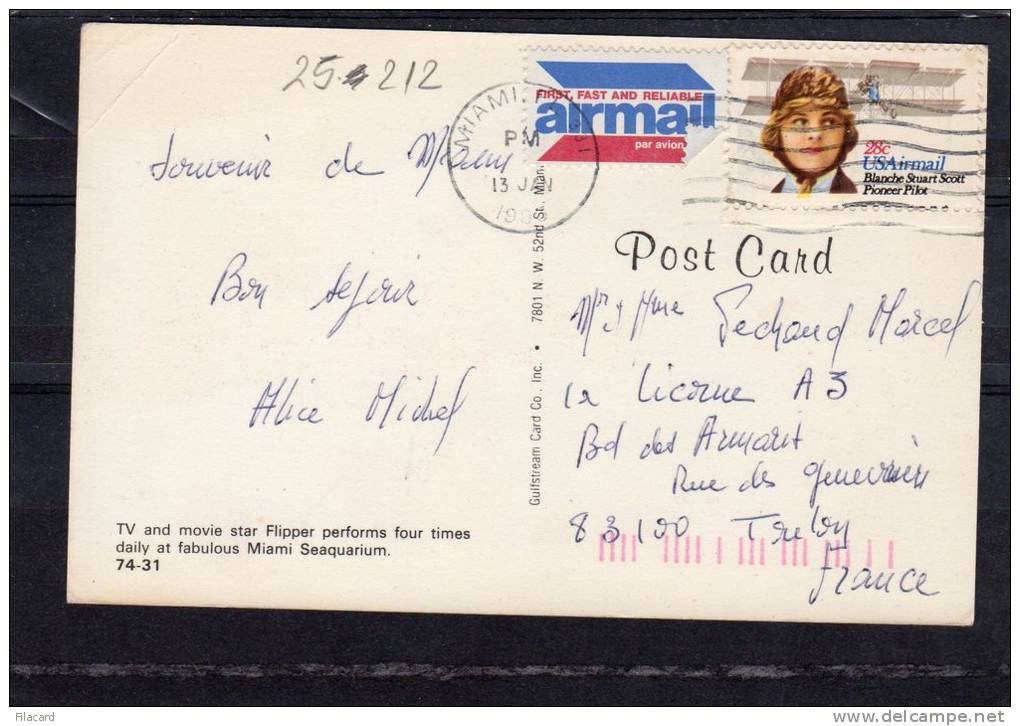 25 212
Souvenir de Miami
Bon séjour
Alice Michel
TV and movie star Flipper performs four times
daily at fabulous Miami Seaquarium.
74-31
Gulfstream Card Co., Inc. • 7801 N. W. 52nd St., Miami
MIAMI
PM
13 JAN
FIRST, FAST AND RELIABLE
airmail
par avion
28c
USAirmail
Blanche Stuart Scott
Pioneer Pilot
Post Card
Mr & Mme Marcel
La Licorne A3
Bd des Armaris
Rue des
83100 Toulon
France
Filacard
www.delcampe.net